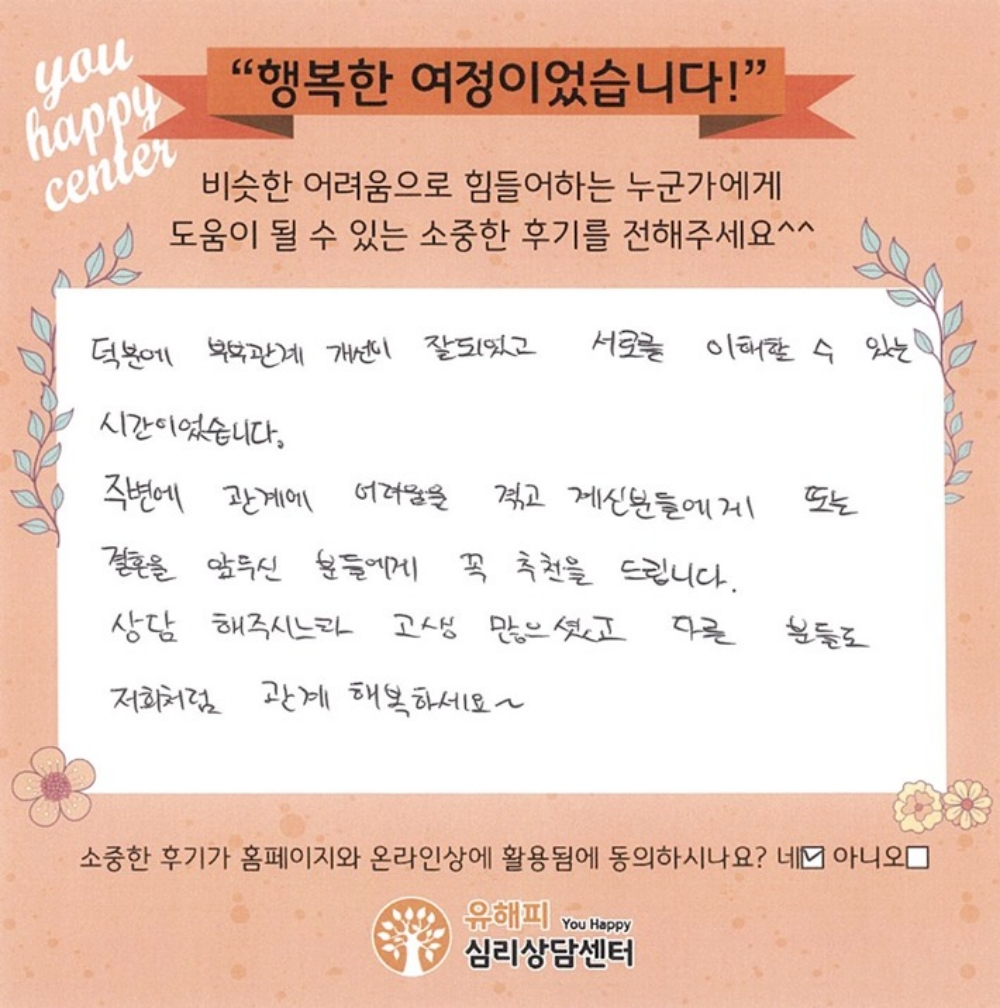 you
happy
center
“행복한 여정이었습니다!”
비슷한 어려움으로 힘들어하는 누군가에게
도움이 될 수 있는 소중한 후기를 전해주세요^^
덕분에 부부관계 개선이 잘되었고 서로를 이해할 수 있는
시간이었습니다.
주변에 관계에 어려움을 겪고 계신분들에게 또는
결혼을 앞두신 분들에게 꼭 추천을 드립니다.
상담 해주시느라 고생 많으셨고 다른 분들도
저희처럼 관계 행복하세요~
소중한 후기가 홈페이지와 온라인상에 활용됨에 동의하시나요? 네☑ 아니오☐
유해피 You Happy
심리상담센터